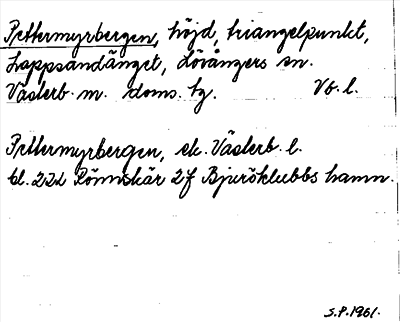 Pettermyrbergen, höjd, triangelpunkt,
Lappsandänget, Lövångers sn.
Västerb. m. doms. tg. Vb. l.
Pettermyrbergen, ek. Västerb. l.
bl. 22L Rönnskär 2f Bjuröklubbs hamn.
S.P. 1961.